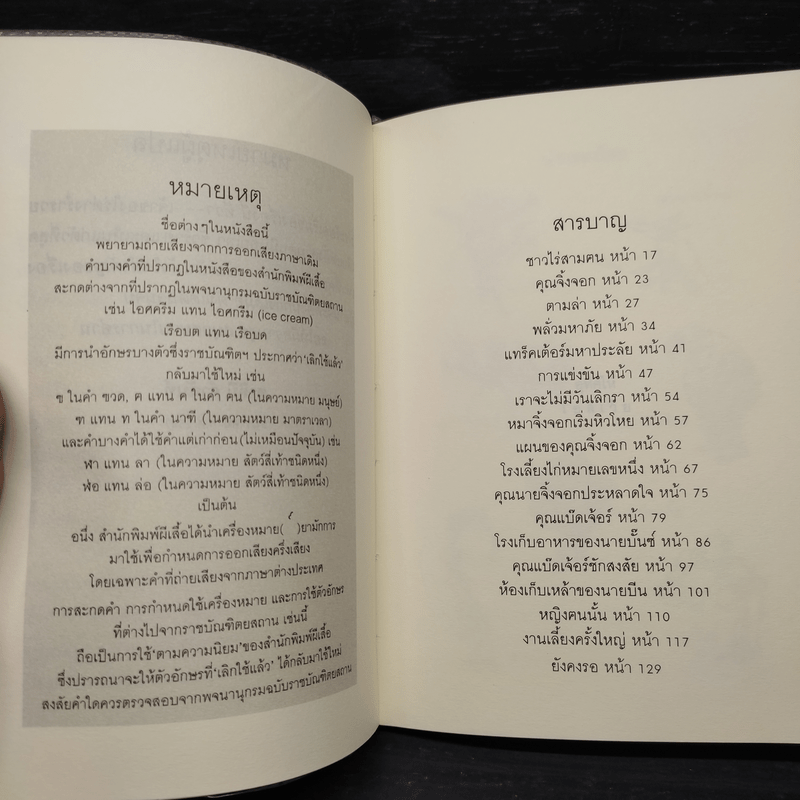 หมายเหตุ
ชื่อต่าง ๆ ในหนังสือนี้
พยายามถ่ายเสียงจากการออกเสียงภาษาเดิม
คำบางคำที่ปรากฏในหนังสือของสำนักพิมพ์ผีเสื้อ
สะกดต่างจากที่ปรากฏในพจนานุกรมฉบับราชบัณฑิตยสถาน
เช่น ไอศครีม แทน ไอศกรีม (ice cream)
เรือบต แทน เรือบด
มีการนำอักษรบางตัวซึ่งราชบัณฑิตฯ ประกาศว่า'เลิกใช้แล้ว'
กลับมาใช้ใหม่ เช่น
ฃ ในคำ ฃวด, ฅ แทน ค ในคำ ฅน (ในความหมาย มนุษย์)
ฑ แทน ท ในคำ นาฑี (ในความหมาย มาตราเวลา)
และคำบางคำได้ใช้คำแต่เก่าก่อน (ไม่เหมือนปัจจุบัน) เช่น
ฬา แทน ลา (ในความหมาย สัตว์สี่เท้าชนิดหนึ่ง)
ฬ่อ แทน ล่อ (ในความหมาย สัตว์สี่เท้าชนิดหนึ่ง)
เป็นต้น
อนึ่ง สำนักพิมพ์ผีเสื้อได้นำเครื่องหมาย( ๎ )ยามักการ
มาใช้เพื่อกำหนดการออกเสียงครึ่งเสียง
โดยเฉพาะคำที่ถ่ายเสียงจากภาษาต่างประเทศ
การสะกดคำ การกำหนดใช้เครื่องหมาย และการใช้ตัวอักษร
ที่ต่างไปจากราชบัณฑิตยสถาน เช่นนี้
ถือเป็นการใช้'ตามความนิยม'ของสำนักพิมพ์ผีเสื้อ
ซึ่งปรารถนาจะให้ตัวอักษรที่'เลิกใช้แล้ว' ได้กลับมาใช้ใหม่
สงสัยคำใดควรตรวจสอบจากพจนานุกรมฉบับราชบัณฑิตยสถาน
สารบาญ
ชาวไร่สามฅน หน้า 17
คุณจิ้งจอก หน้า 23
ตามล่า หน้า 27
พลั่วมหาภัย หน้า 34
แทร็คเต้อร์มหาประลัย หน้า 41
การแข่งขัน หน้า 47
เราจะไม่มีวันเลิกรา หน้า 54
หมาจิ้งจอกเริ่มหิวโหย หน้า 57
แผนของคุณจิ้งจอก หน้า 62
โรงเลี้ยงไก่หมายเลขหนึ่ง หน้า 67
คุณนายจิ้งจอกประหลาดใจ หน้า 75
คุณแบ๊ดเจ้อร์ หน้า 79
โรงเก็บอาหารของนายบั๊นซ์ หน้า 86
คุณแบ๊ดเจ้อร์ชักสงสัย หน้า 97
ห้องเก็บเหล้าของนายบีน หน้า 101
หญิงฅนนั้น หน้า 110
งานเลี้ยงครั้งใหญ่ หน้า 117
ยังคงรอ หน้า 129